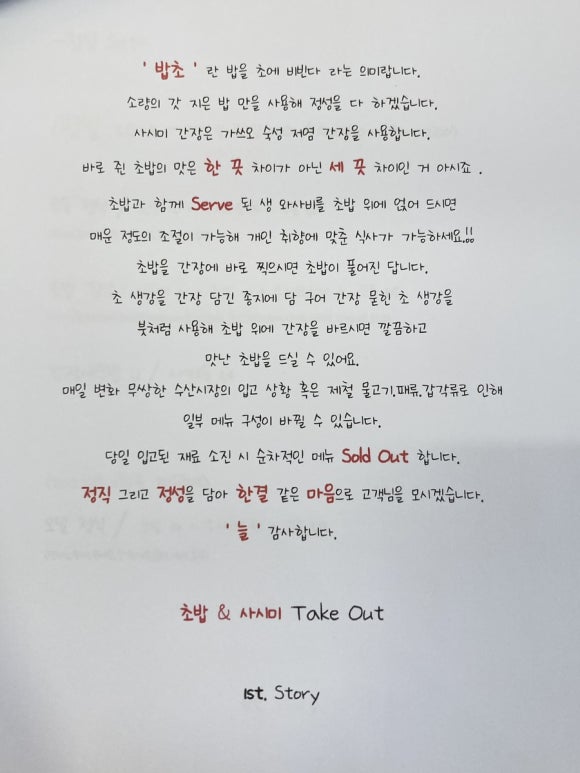 ' 밥초 ' 란 밥을 초에 비빈다 라는 의미랍니다.
소량의 갓 지은 밥 만을 사용해 정성을 다 하겠습니다.
사시미 간장은 가쓰오 숙성 저염 간장을 사용합니다.
바로 쥔 초밥의 맛은 한 끗 차이가 아닌 세 끗 차이인 거 아시죠 .
초밥과 함께 Serve 된 생 와사비를 초밥 위에 얹어 드시면
매운 정도의 조절이 가능해 개인 취향에 맞춘 식사가 가능하세요!!
초밥을 간장에 바로 찍으시면 초밥이 풀어진 답니다.
초 생강을 간장 담긴 종지에 담 구어 간장 묻힌 초 생강을
붓처럼 사용해 초밥 위에 간장을 바르시면 깔끔하고
맛난 초밥을 드실 수 있어요.
매일 변화 무쌍한 수산시장의 입고 상황 혹은 제철 물고기.패류.갑각류로 인해
일부 메뉴 구성이 바뀔 수 있습니다.
당일 입고된 재료 소진 시 순차적인 메뉴 Sold Out 합니다.
정직 그리고 정성을 담아 한결 같은 마음으로 고객님을 모시겠습니다.
' 늘 ' 감사합니다.
초밥 & 사시미 Take Out
1st. Story